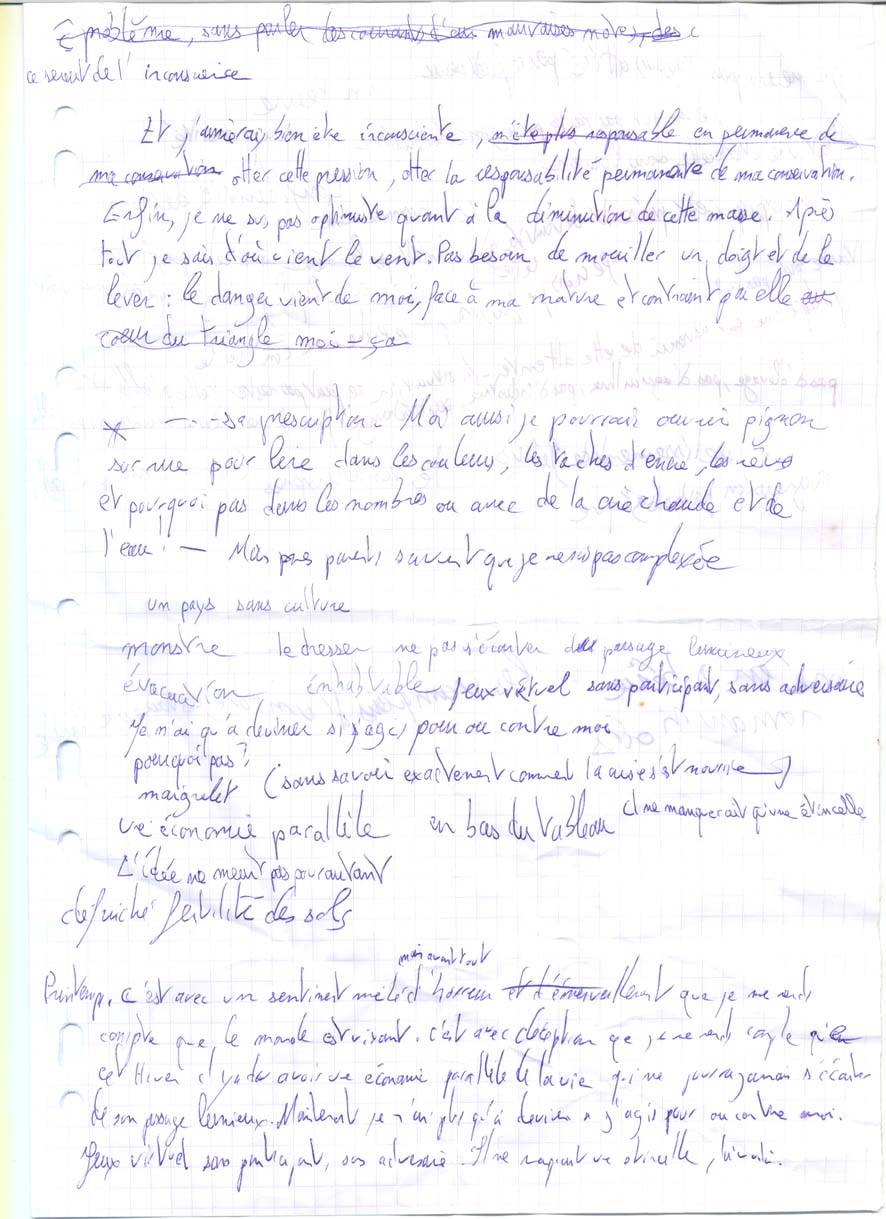 problème, sans parler des courants d'air mauvaises notes, des
ce serait de l'inconscience
Et j'aimerais bien être inconsciente, n'être plus responsable en permanence de
ma conservation otter cette pression, otter la responsabilité permanente de ma conservation.
Enfin, je ne suis pas optimiste quant à la diminution de cette masse. Après
tout je sais d'où vient le vent. Pas besoin de mouiller un doigt et de le
lever : le danger vient de moi, face à ma nature et contraint par elle au
coeur du triangle moi - ça
* --- sa prescription. Moi aussi je pourrais ouvrir pignon
sur rue pour lire dans les couleurs, les taches d'encre, les rêves
et pourquoi pas dans les nombres ou avec de la cire chaude et de
l'eau! — Mais mes parents savent que je ne suis pas complexée
un pays sans culture
monstre le dresser ne pas s'écarter du passage lumineux
évacuation inhabitable Jeux virtuel sans participant, sans adversaire
Je n'ai qu'à deviner si j'agis pour ou contre moi
pourquoi pas?
maigrelet (sans savoir exactement comment la crise s'est nourrie)
une économie parallèle en bas du tableau il ne manquerait qu'une étincelle
L'idée ne meurt pas pour autant
défriché fertilité des sols
mais avant tout
Printemps. C'est avec un sentiment mêlé d'horreur et d'émerveillement que je me rends
compte que le monde est vivant. C'est avec déception que je me rends compte qu'en
cet Hiver il y a dû avoir une économie parallèle de la vie qui ne pourra jamais s'écarter
de son passage lumineux. Maintenant je n'ai plus qu'à deviner si j'agis pour ou contre moi.
Jeux virtuel sans participant, sans adversaire. Il ne manquait une étincelle,